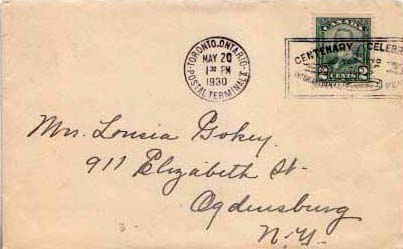 TORONTO, ONTARIO
MAY 20
1 30 PM
1930
POSTAL TERMINAL
CANADA
2 CENTS 2
CENTENARY CELEBR
Mrs. Lousia Gokey.
911 Elizabeth St.
Ogdensburg
N.Y.